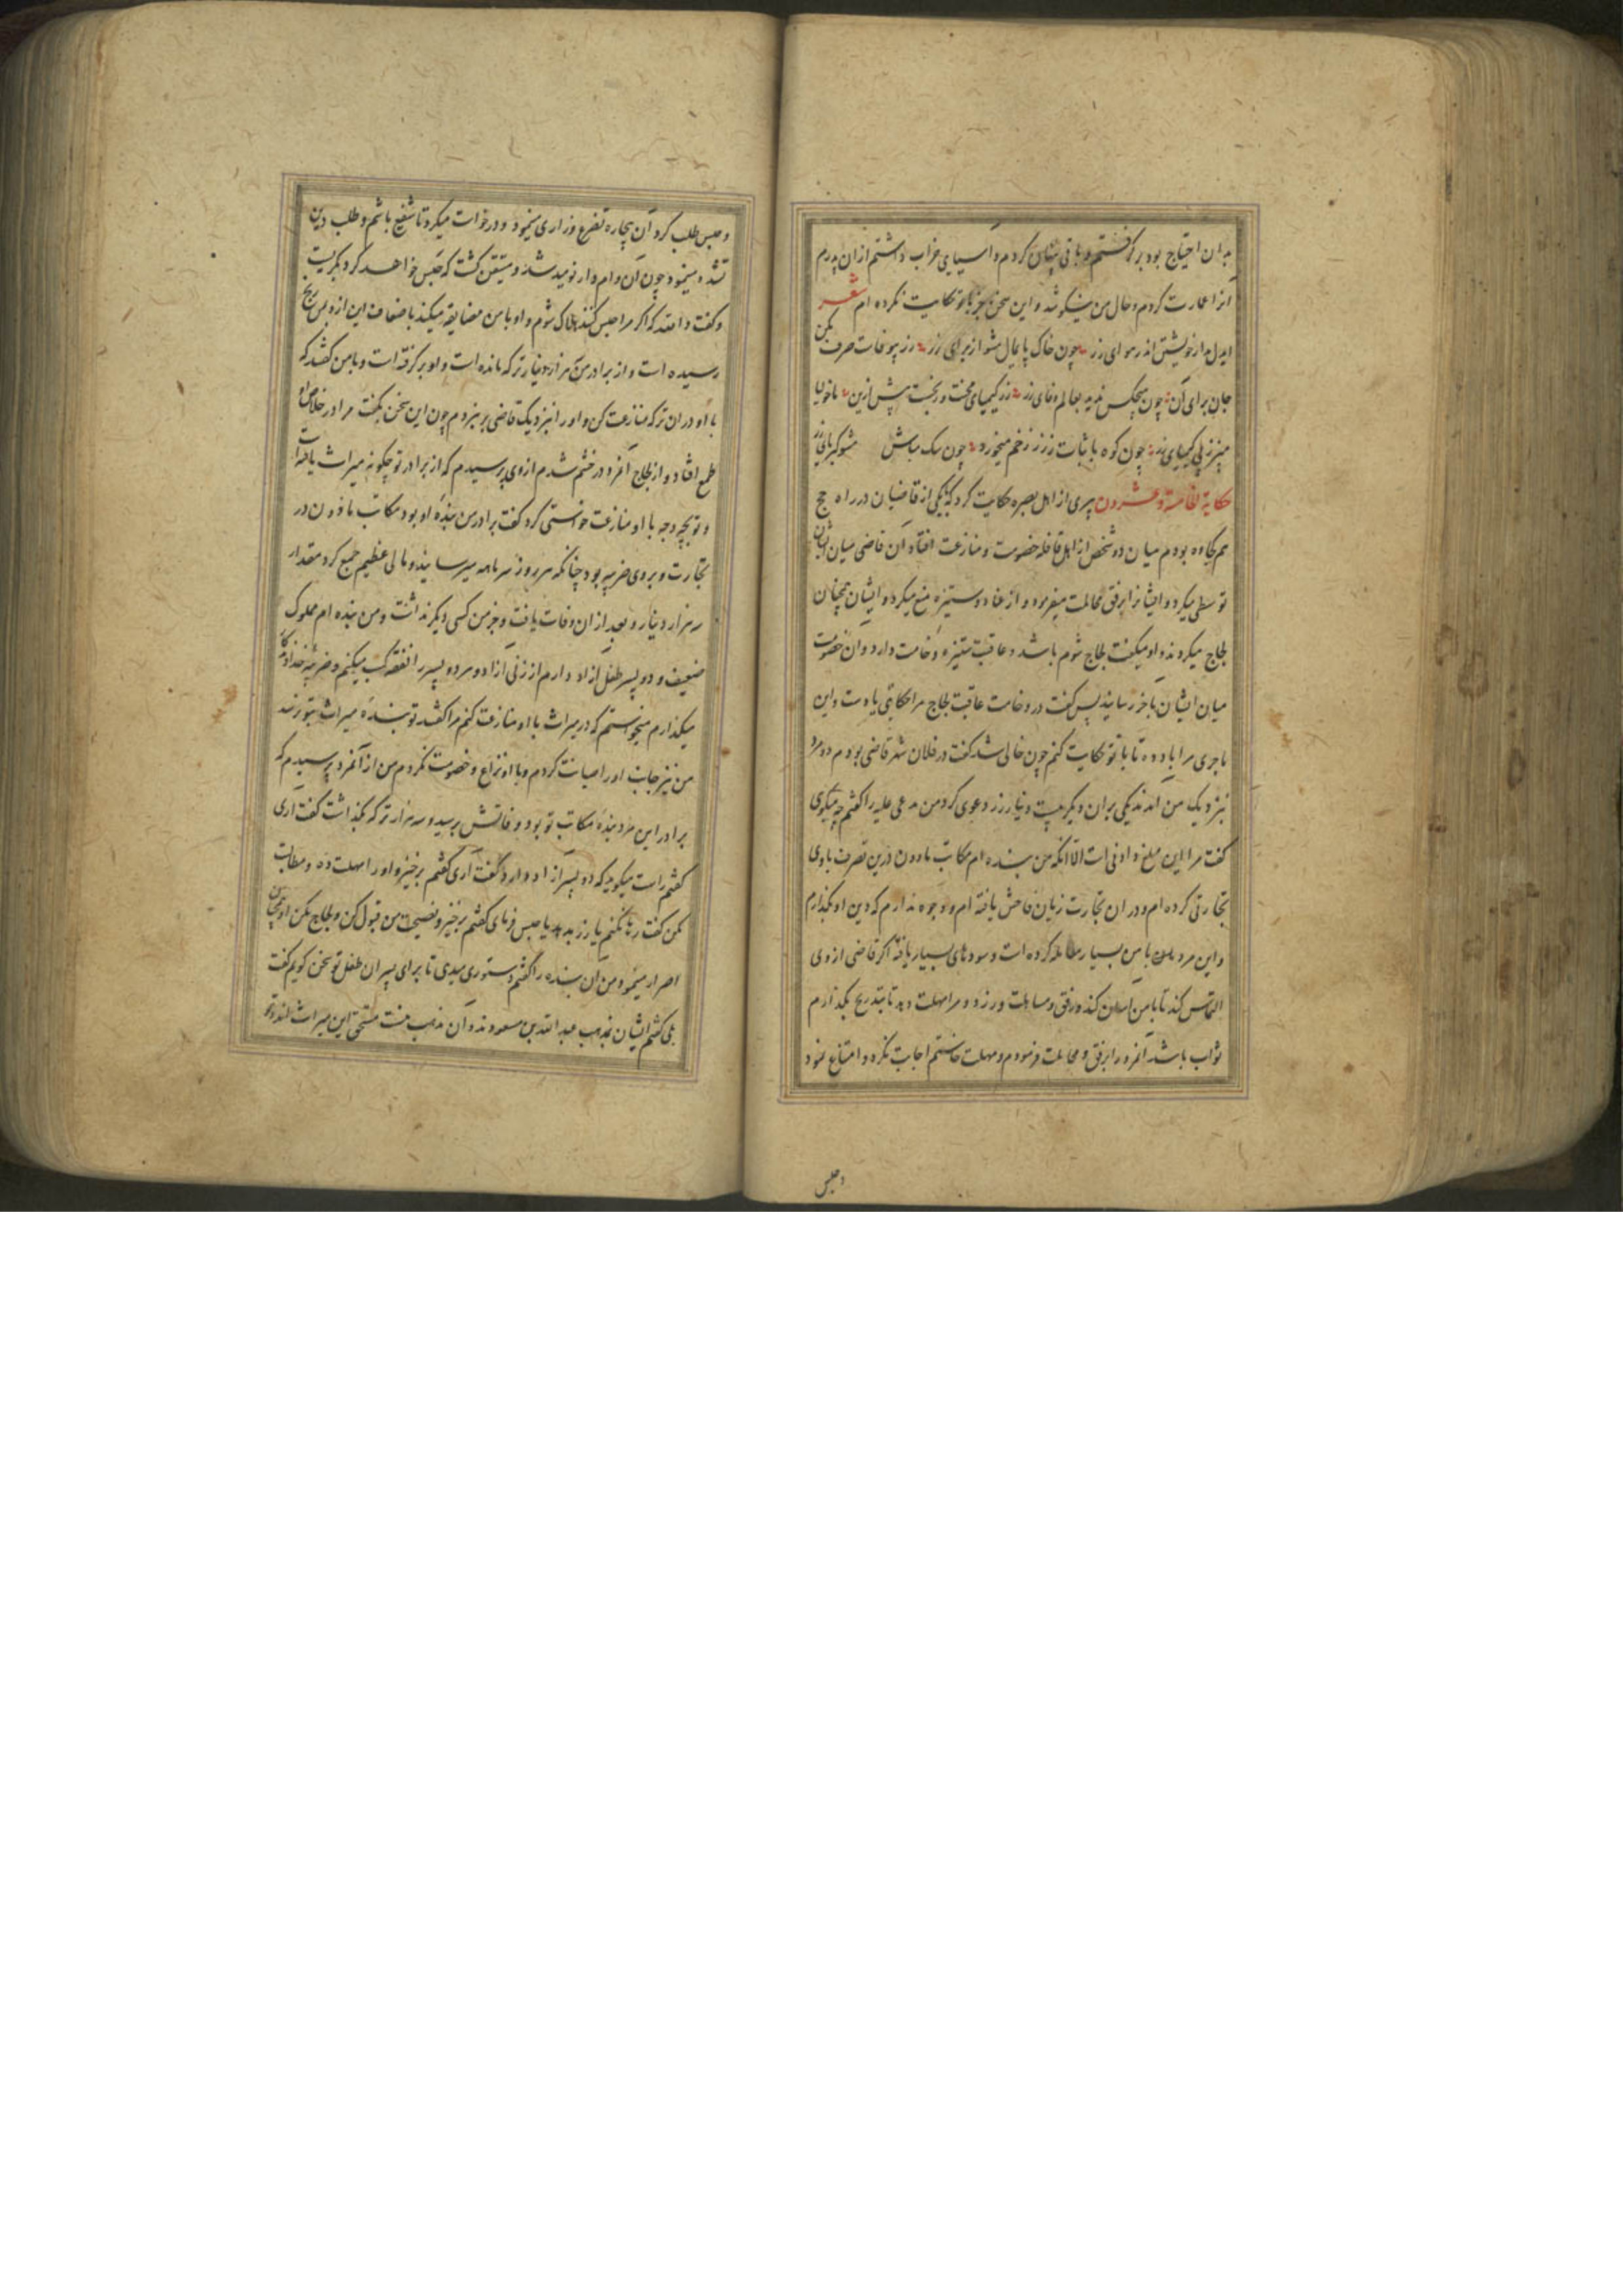 بدان احتیاج بود بر گرفتم و باقی پنهان کردم و آسیای خراب داشتم از ان پدرم
آنرا عمارت کردم و حال من نیکو شد و این سخن جز با تو حکایت نکرده ام شعر
ایدل مدار خویشتن اندر هوای زر چون خاک پایمال مشو از برای زر زر بیوفاست صرف مکن
جان برای آن چون هیچکس ندید بعالم وفای زر زر کیمیای محنت و رنجست پیش ازین
مپز زپی کیمیای زر چون کوه با ثبات ز زر زخم میخورد چون سک مباش
حکایة الخامسة و عشرون پیری از اهل بصره حکایت کرد که با یکی از قاضیان در راه حج
هم کجاوه بودم میان دو شخص از اهل قافله خصومت و منازعت افتاد آن قاضی میان ایشان
توسطی میکرد و ایشانرا برفق مجاملت میفرمود و از عناد و ستیزه منع میکرد و ایشان همچنان
لجاج میکردند و او میکفت لجاج شوم باشد و عاقبت ستیزه وخامت دارد و ان خصومت
میان ایشان باخر رسانید پس کفت در وخامت عاقبت لجاج مرا حکایتی یادست و این
ماجری مرا یاد ده تا با تو حکایت کنم چون خالی شد کفت در فلان شهر قاضی بودم دو مرد
نزدیک من آمدند یکی بران دیکر بیست دینار زر دعوی کرد من مدعی علیه را کفتم چه میکوی
کفت مرا این مبلغ دادنی است الا انکه من بنده ام مکاتب ماذون درین تصرف با وی
تجارتی کرده ام و در ان تجارت زیان فاحش یافته ام و وجوه ندارم که دین او بکذارم
و این مرد با من بسیار معامله کرده است و سودهای بسیار یافته اکر قاضی از وی
التماس کند تا با من آسان کند و رفق و مساهلت ورزد و مرا مهلت دهد تا بتدریج بکذارم
ثواب باشد آنمرد را برفق و مجاملت فرمودم و مهلت خاستم اجابت نکرد و امتناع نمود
و حبس
و حبس طلب کرد آن بیچاره تضرع و زاری مینمود و درخواست میکرد تا شفیع باشم و طلب دین
تشدد مینمود چون آن وام دار نومید شد و متیقن کشت که حبس خواهد کرد بکریست
و کفت والله که اکر مرا حبس کنند هلاک شوم و او با من مضایقه میکند باضعاف این از و بمن رنج
رسیده است و از برادر من هزار دینار ترکه مانده است و او بر کرفته است و با من کفتند که
با او دران ترکه منازعت کن و او را بنزدیک قاضی بر نبردم چون این سخن بکفت مرا در خلاص او
طمع افتاد و از لجاج آنمرد در خشم شدم از وی پرسیدم که از برادر تو چکونه میراث یافته است
و تو بچه وجه با او منازعت خواستی کرد کفت برادر من بندهٔ او بود مکاتب ماذون در
تجارت و بر وی ضریبه بود چنانکه هر روز سر ماهه میرسانید و مالی عظیم جمع کرد مقدار
سه هزار دینار و بعد از ان وفات یافت و جز من کسی دیکر نداشت و من بنده ام مملوک
ضعیف و دو پسر طفل آزاد دارم از زنی آزاد و هر دو پسر را نفقه کسب میکنم و ضریبه خداوندکار
میکذارم میخواستم که در میراث با او منازعت کنم مرا کفتند تو بنده میراث بتو نرسد
من نیز جانب او را صیانت کردم و با او نزاع و خصومت نکردم من از آنمرد پرسیدم که
برادر این مرد بندهٔ مکاتب تو بود و فاتش برسید و سه هزار ترکه بکذاشت کفت آری
کفتم راست میکوید که دو پسر آزاد دارد کفت آری کفتم برخیز و او را مهلت ده و مطالبت
مکن کفت رها نکنم یا زر بدهد یا حبس فرمای کفتم برخیز و نصیحت من قبول کن و لجاج مکن او همچنان
اصرار مینمود من آن بنده را کفتم دستوری میدی تا برای پسران طفل تو سخن کویم کفت
بلی کفتم ایشان بمذهب عبد الله بن مسعودند و آن مذهب منست مستحق این میراث